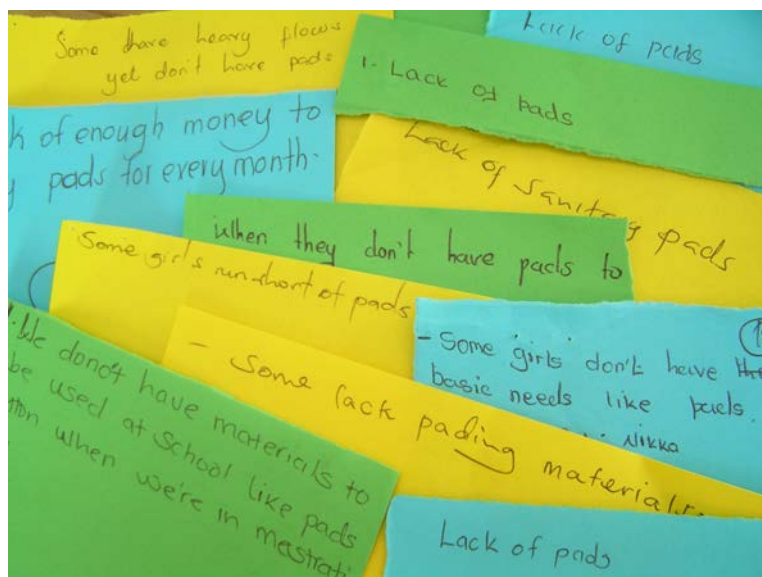 Some have heavy flows
yet don't have pads
Lack of pads
1. Lack of pads
of enough money to
pads for every month.
Lack of Sanitary pads
when they don't have pads to
Some girls run-short of pads
- Some girls don't have
basic needs like pads.
Nikka
- Some lack pading materials
We don't have materials to
be used at school like pads
when we're in
Lack of pads